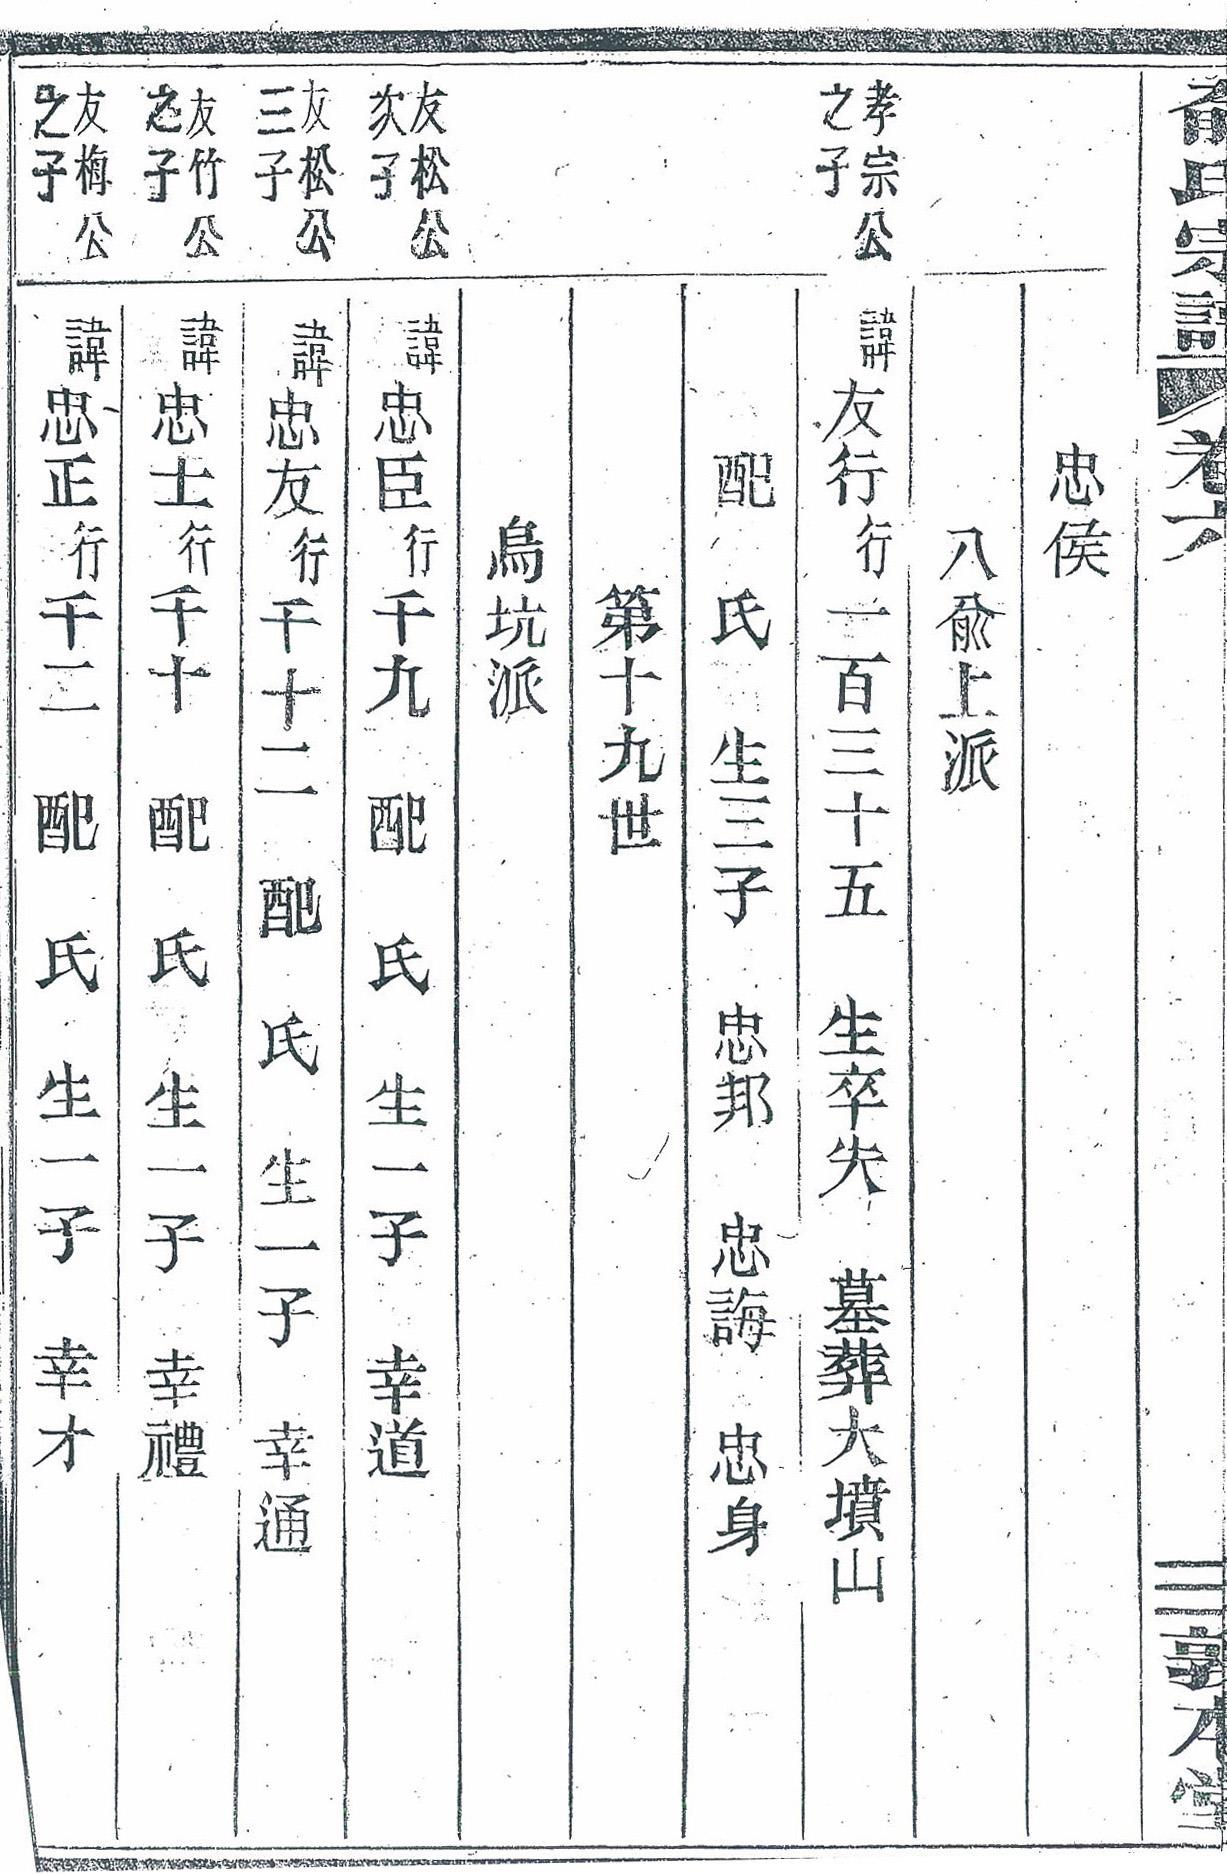 氏宗譜 卷六 三 敦本堂
忠侯
八俞上派
孝宗公
之子
諱友行行一百三十五 生卒失 墓葬大墳山
配 氏 生三子 忠邦 忠誨 忠身
第十九世
烏坑派
友松公
次子
諱忠臣行千九 配 氏 生一子 幸道
友松公
三子
諱忠友行千十二 配 氏 生一子 幸通
友竹公
之子
諱忠士行千十 配 氏 生一子 幸禮
友梅公
之子
諱忠正行千二 配 氏 生一子 幸才